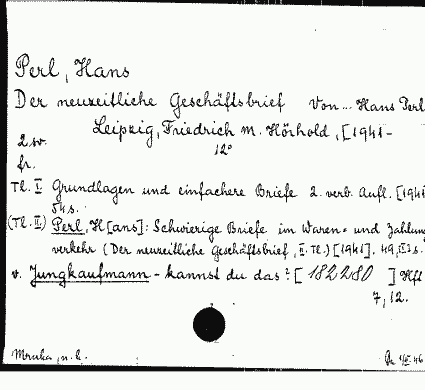 Perl, Hans
Der neuzeitliche Geschäftsbrief Von... Hans Perl
Leipzig, Friedrich M. Hörhold, [1941-
12°
fr.
Tl. I Grundlagen und einfachere Briefe 2. verb. Aufl. [1941
54 s.
(Tl. II) Perl, H[ans]: Schwierige Briefe im Waren- und Zahlung
verkehr (Der neuzeitliche Geschäftsbrief, II. Tl.) [1941]. 49, II s.
v. Jungkaufmann - kannst du das? [ 182280 ] Hft
7, 12.